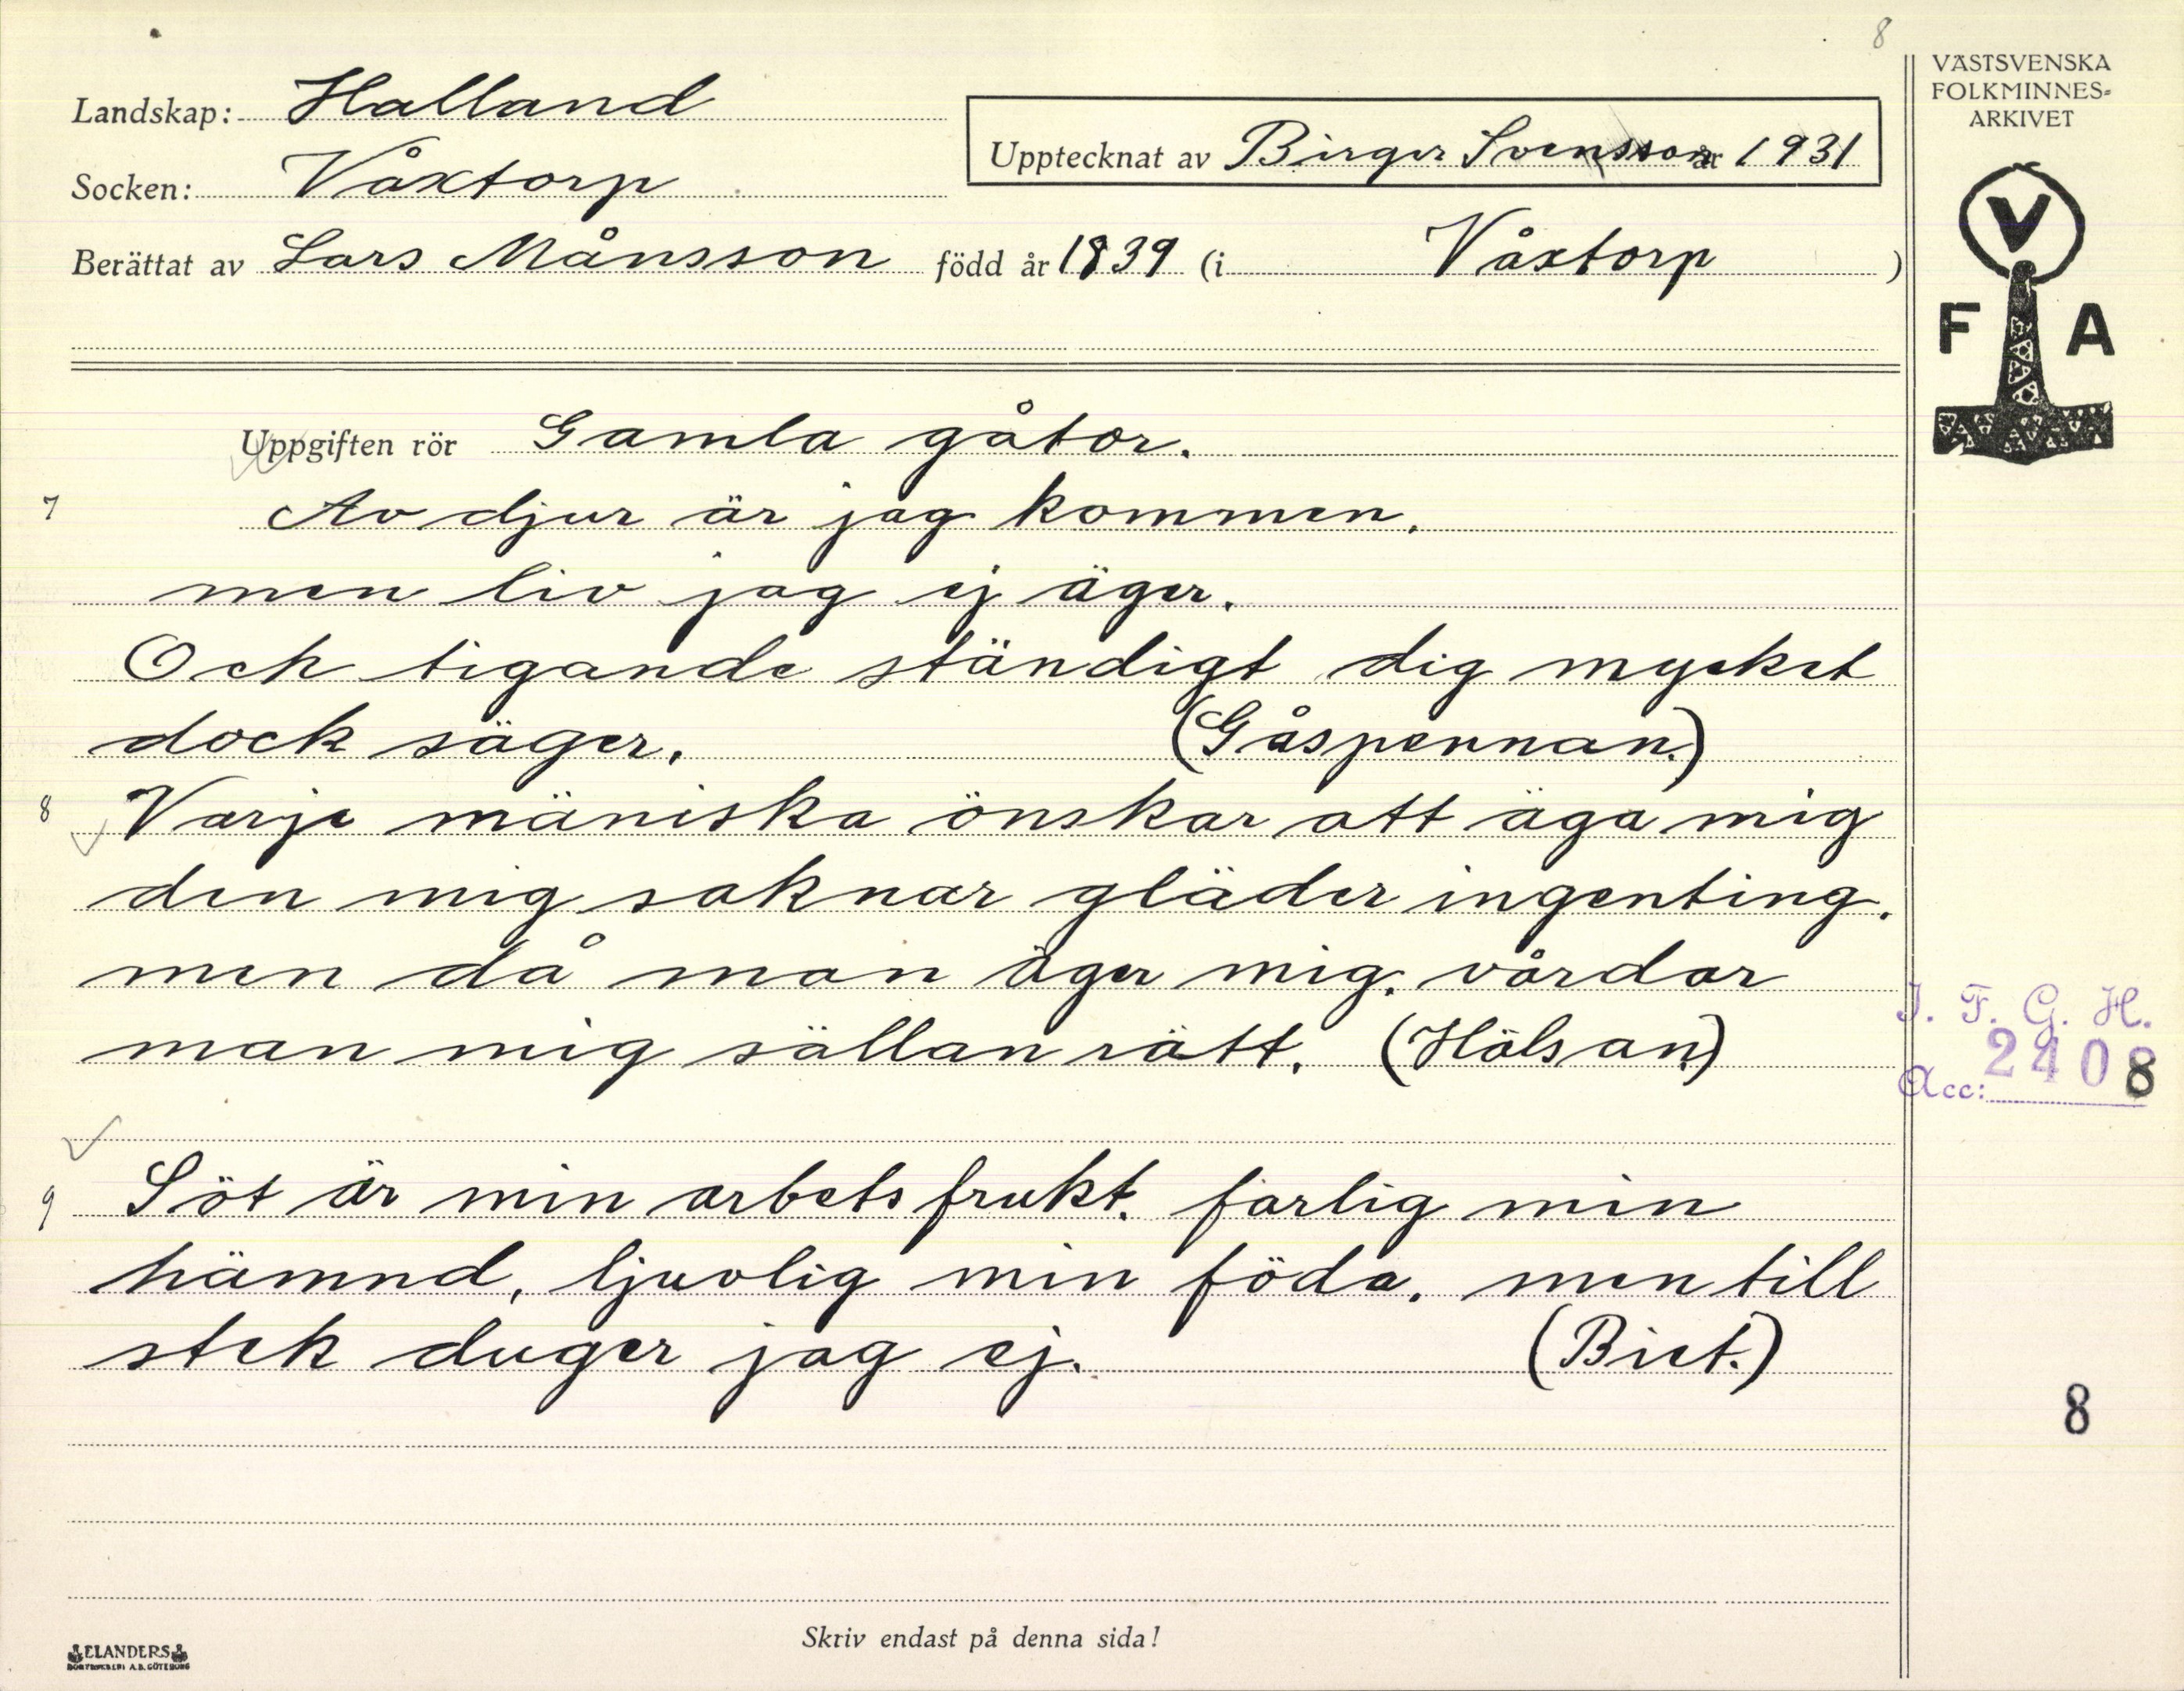 8
VÄSTSVENSKA
FOLKMINNES-
ARKIVET
Landskap: Halland
Upptecknat av Birger Svensson år 1931
Socken: Våxtorp
Berättat av Lars Månsson född år 1839 (i Våxtorp )
V
F A
Uppgiften rör Gamla gåtor.
7 Av djur är jag kommen.
men liv jag ej äger.
Och tigande ständigt dig mycket
dock säger. (Gåspennan.)
8 Varje mäniska önskar att äga mig
den mig saknar gläder ingenting.
men då man äger mig. vårdar
man mig sällan rätt. (Hälsan.)
I. F. G. H.
Acc: 2408
9 Söt är min arbets frukt. farlig min
hämnd, ljuvlig min föda. men till
stek duger jag ej. (Biet.)
8
Skriv endast på denna sida!
ELANDERS
BOKTRYCKERI A.B. GÖTEBORG